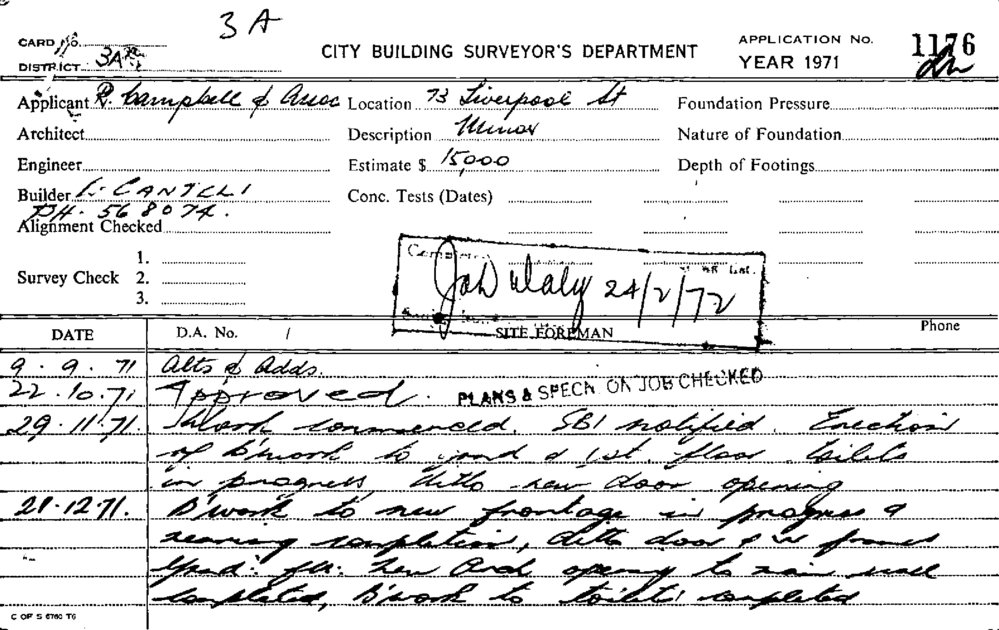 3A
CARD No.
DISTRICT 3A
CITY BUILDING SURVEYOR'S DEPARTMENT
APPLICATION No. 1176
YEAR 1971
Applicant R. Campbell & Assoc Location 73 Liverpool St Foundation Pressure
Architect Description Minor Nature of Foundation
Engineer Estimate $ 15,000 Depth of Footings
Builder CANTELI Conc. Tests (Dates)
PH. 568074.
Alignment Checked
Survey Check 1.
2.
3.
Job Daly 24/2/72
DATE D.A. No. / SITE FOREMAN Phone
9.9.71 Alts & Adds.
22.10.71 Approved. PLANS & SPECN. ON JOB CHECKED
29.11.71. Work commenced. SBI notified. Erection
of B'work to grnd & 1st floor toilets
in progress ditto new door opening
21.12.71. B'work to new frontage in progress &
nearing completion, ditto door & w frames
Grnd: flr: new Arch opening to main wall
completed, B'work to toilets completed
C OF S 6760 T6